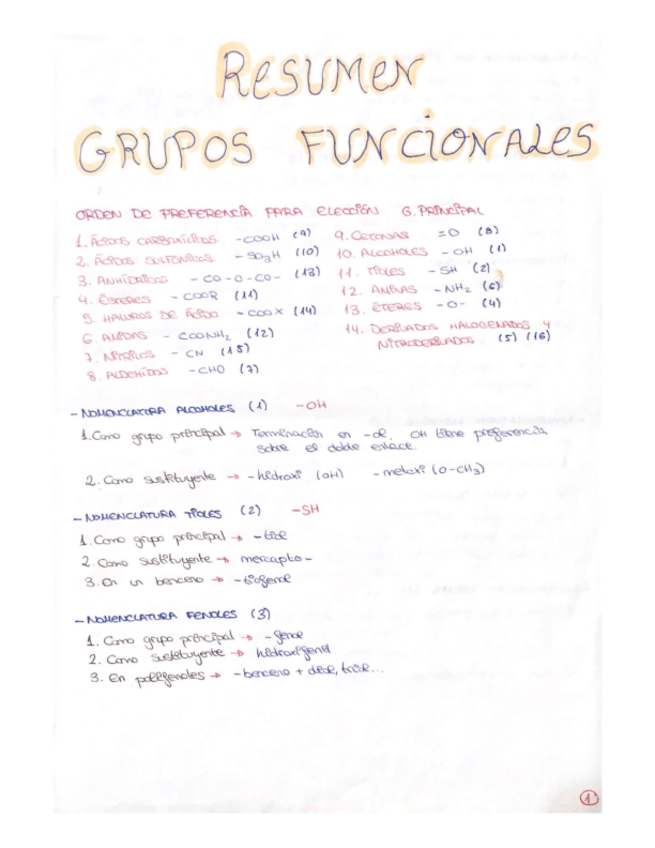 RESUMEN
GRUPOS FUNCIONALES
ORDEN DE PREFERENCIA PARA ELECCIÓN G. PRINCIPAL
1. ÁCIDOS CARBOXÍLICOS -COOH (9)
2. ÁCIDOS SULFÓNICOS - SO3H (10)
3. ANHÍDRIDOS - CO - O - CO - (13)
4. ÉSTERES - COOR (11)
5. HALUROS DE ÁCIDO - COOX (14)
6. AMIDAS - COONH2 (12)
7. NITRILOS - CN (15)
8. ALDEHÍDOS - CHO (7)
9. CETONAS =O (8)
10. ALCOHOLES - OH (1)
11. TIOLES - SH (2)
12. AMINAS - NH2 (6)
13. ÉTERES - O - (4)
14. DERIVADOS HALOGENADOS Y
NITRODERIVADOS (5) (16)
- NOMENCLATURA ALCOHOLES (1) - OH
1. Como grupo principal → Terminación en -ol. OH tiene preferencia
sobre el doble enlace.
2. Como sustituyente → - hidroxi (OH) - metoxi (O-CH3)
- NOMENCLATURA TIOLES (2) - SH
1. Como grupo principal → - tiol
2. Como sustituyente → mercapto -
3. En un benceno → - tiofenol
- NOMENCLATURA FENOLES (3)
1. Como grupo principal → - fenol
2. Como sustituyente → hidroxifenil
3. En polifenoles → - benceno + diol, triol...
1